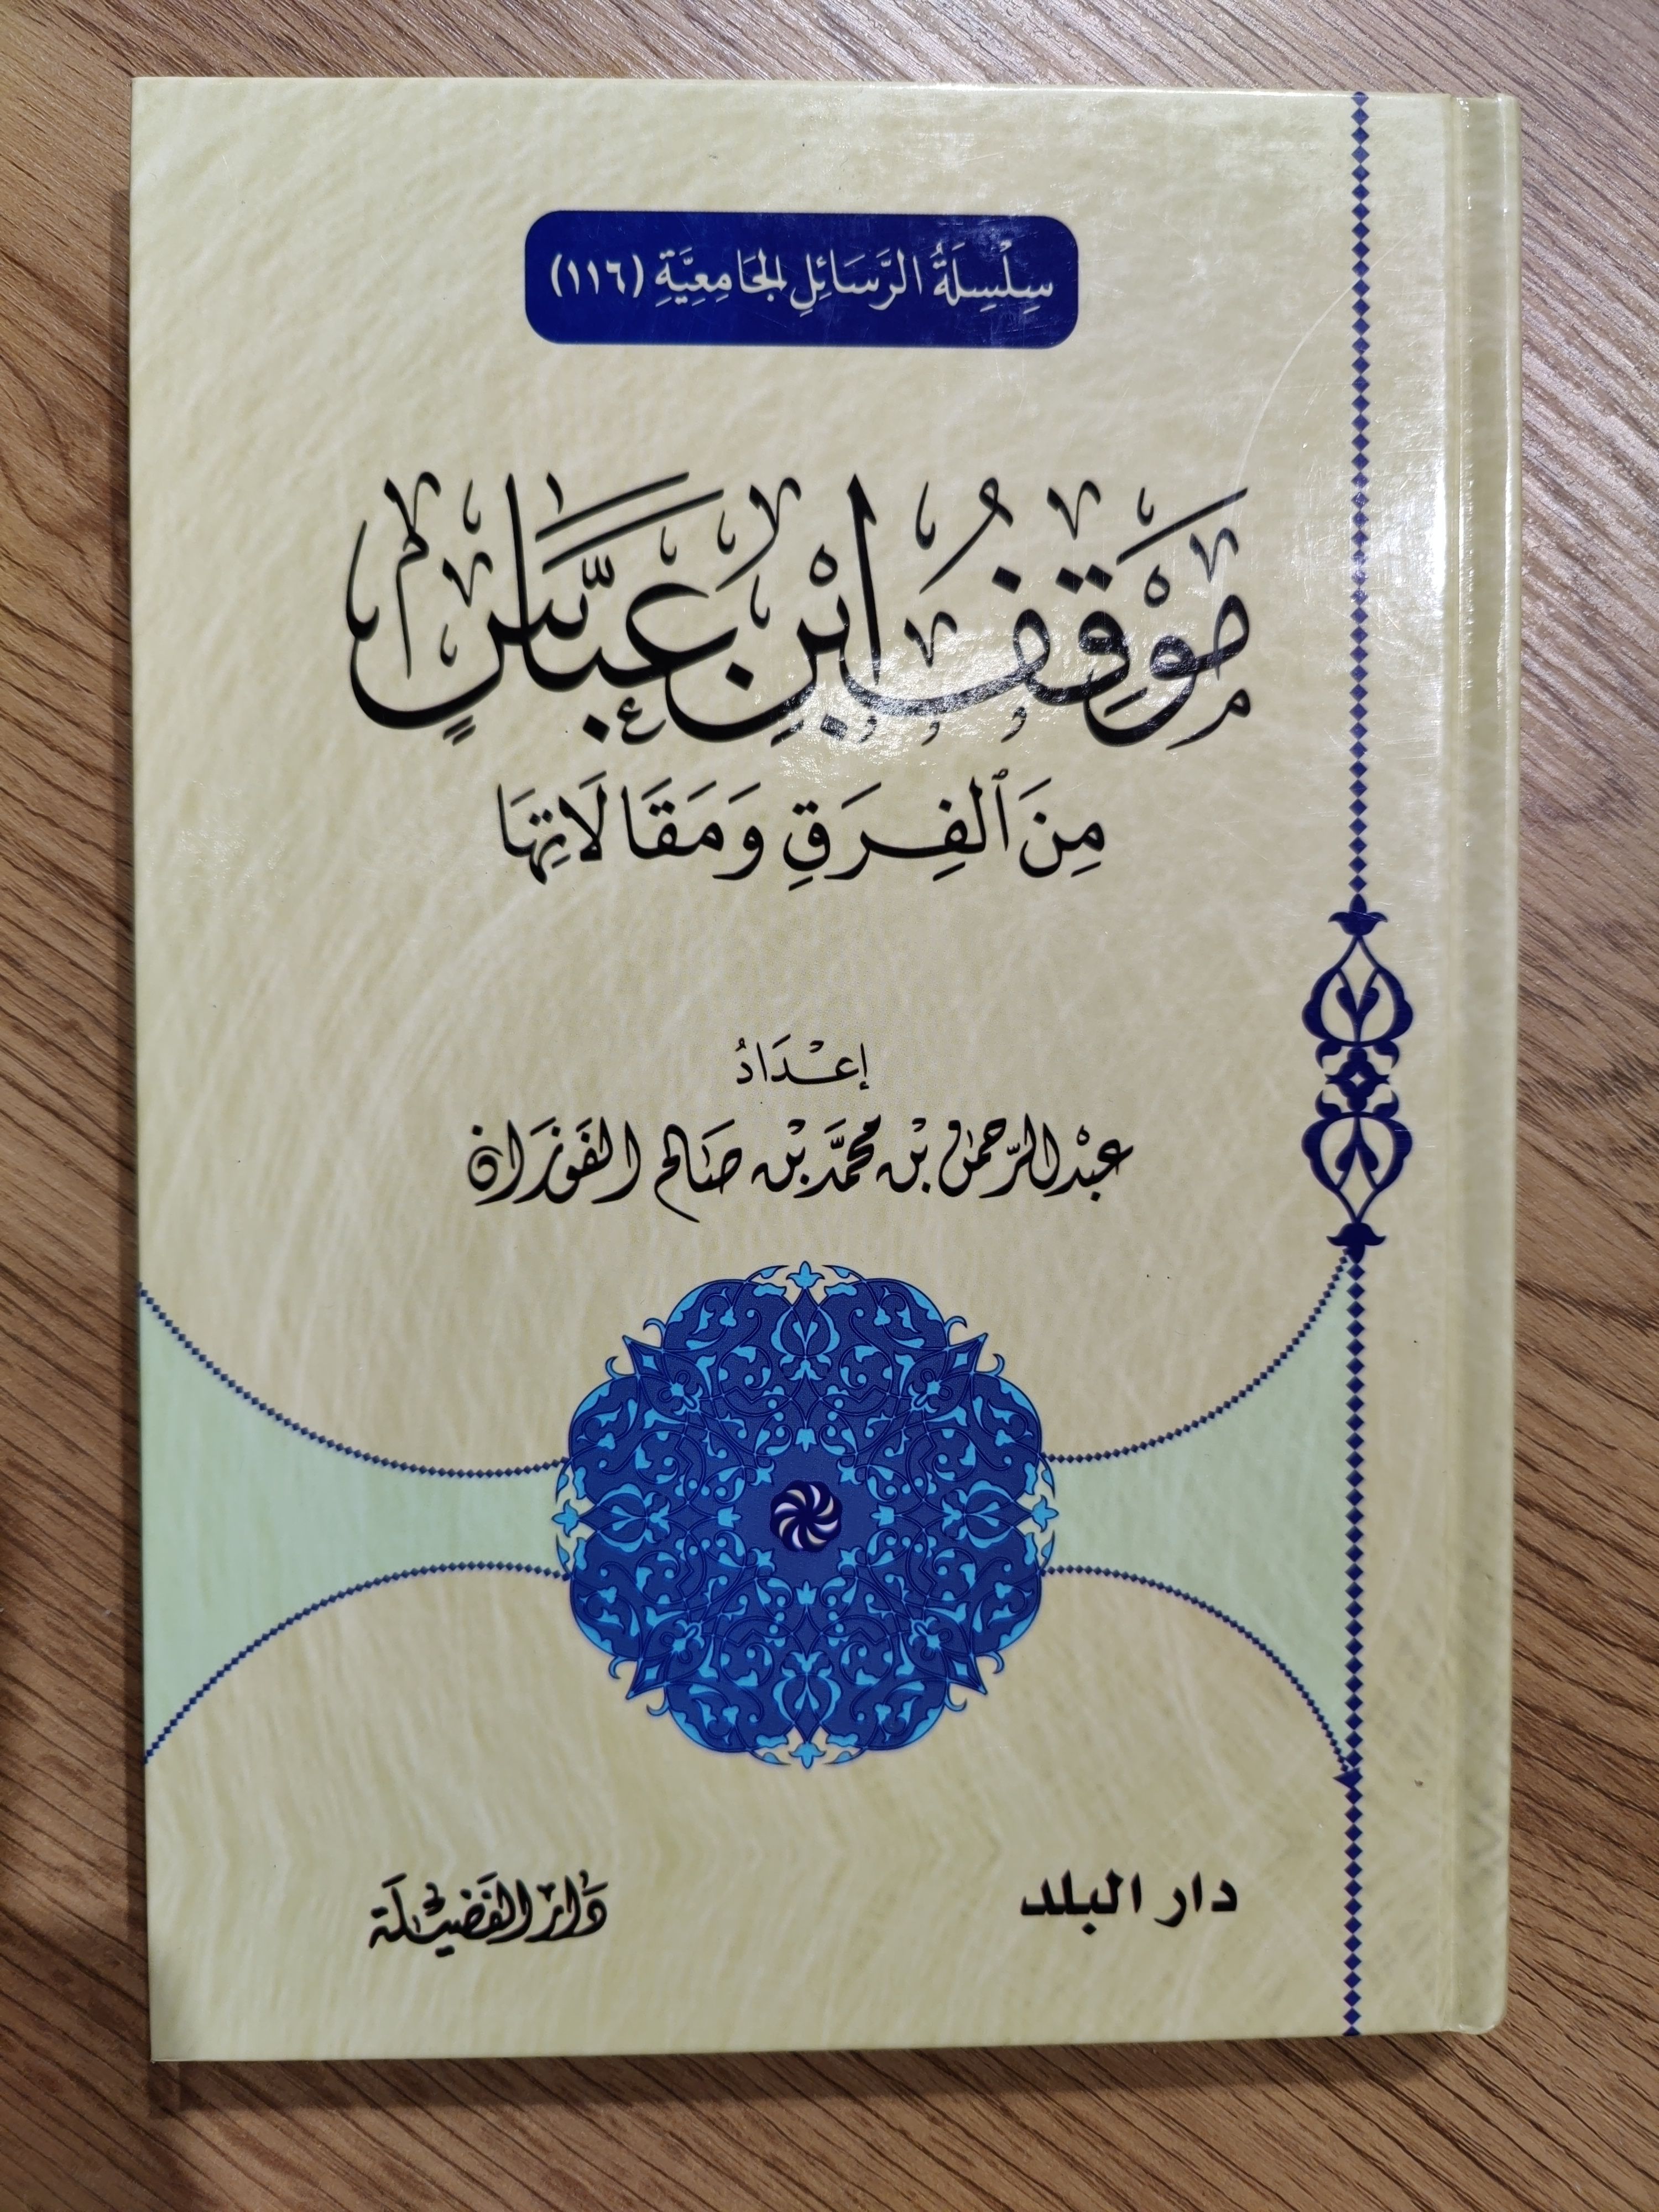 سِلْسِلَةُ الرَّسَائِلِ الجَامِعِيَّةِ (١١٦)
مَوْقِفُ ابْنِ عَبَّاسٍ
مِنَ ٱلْفِرَقِ وَمَقَالَاتِهَا
إِعْدَادُ
عَبْدِ الرَّحْمٰنِ بْنِ مُحَمَّدِ بْنِ صَالِحِ الفَوْزَانِ
دار البلد
دَارُ الفَضِيْلَة